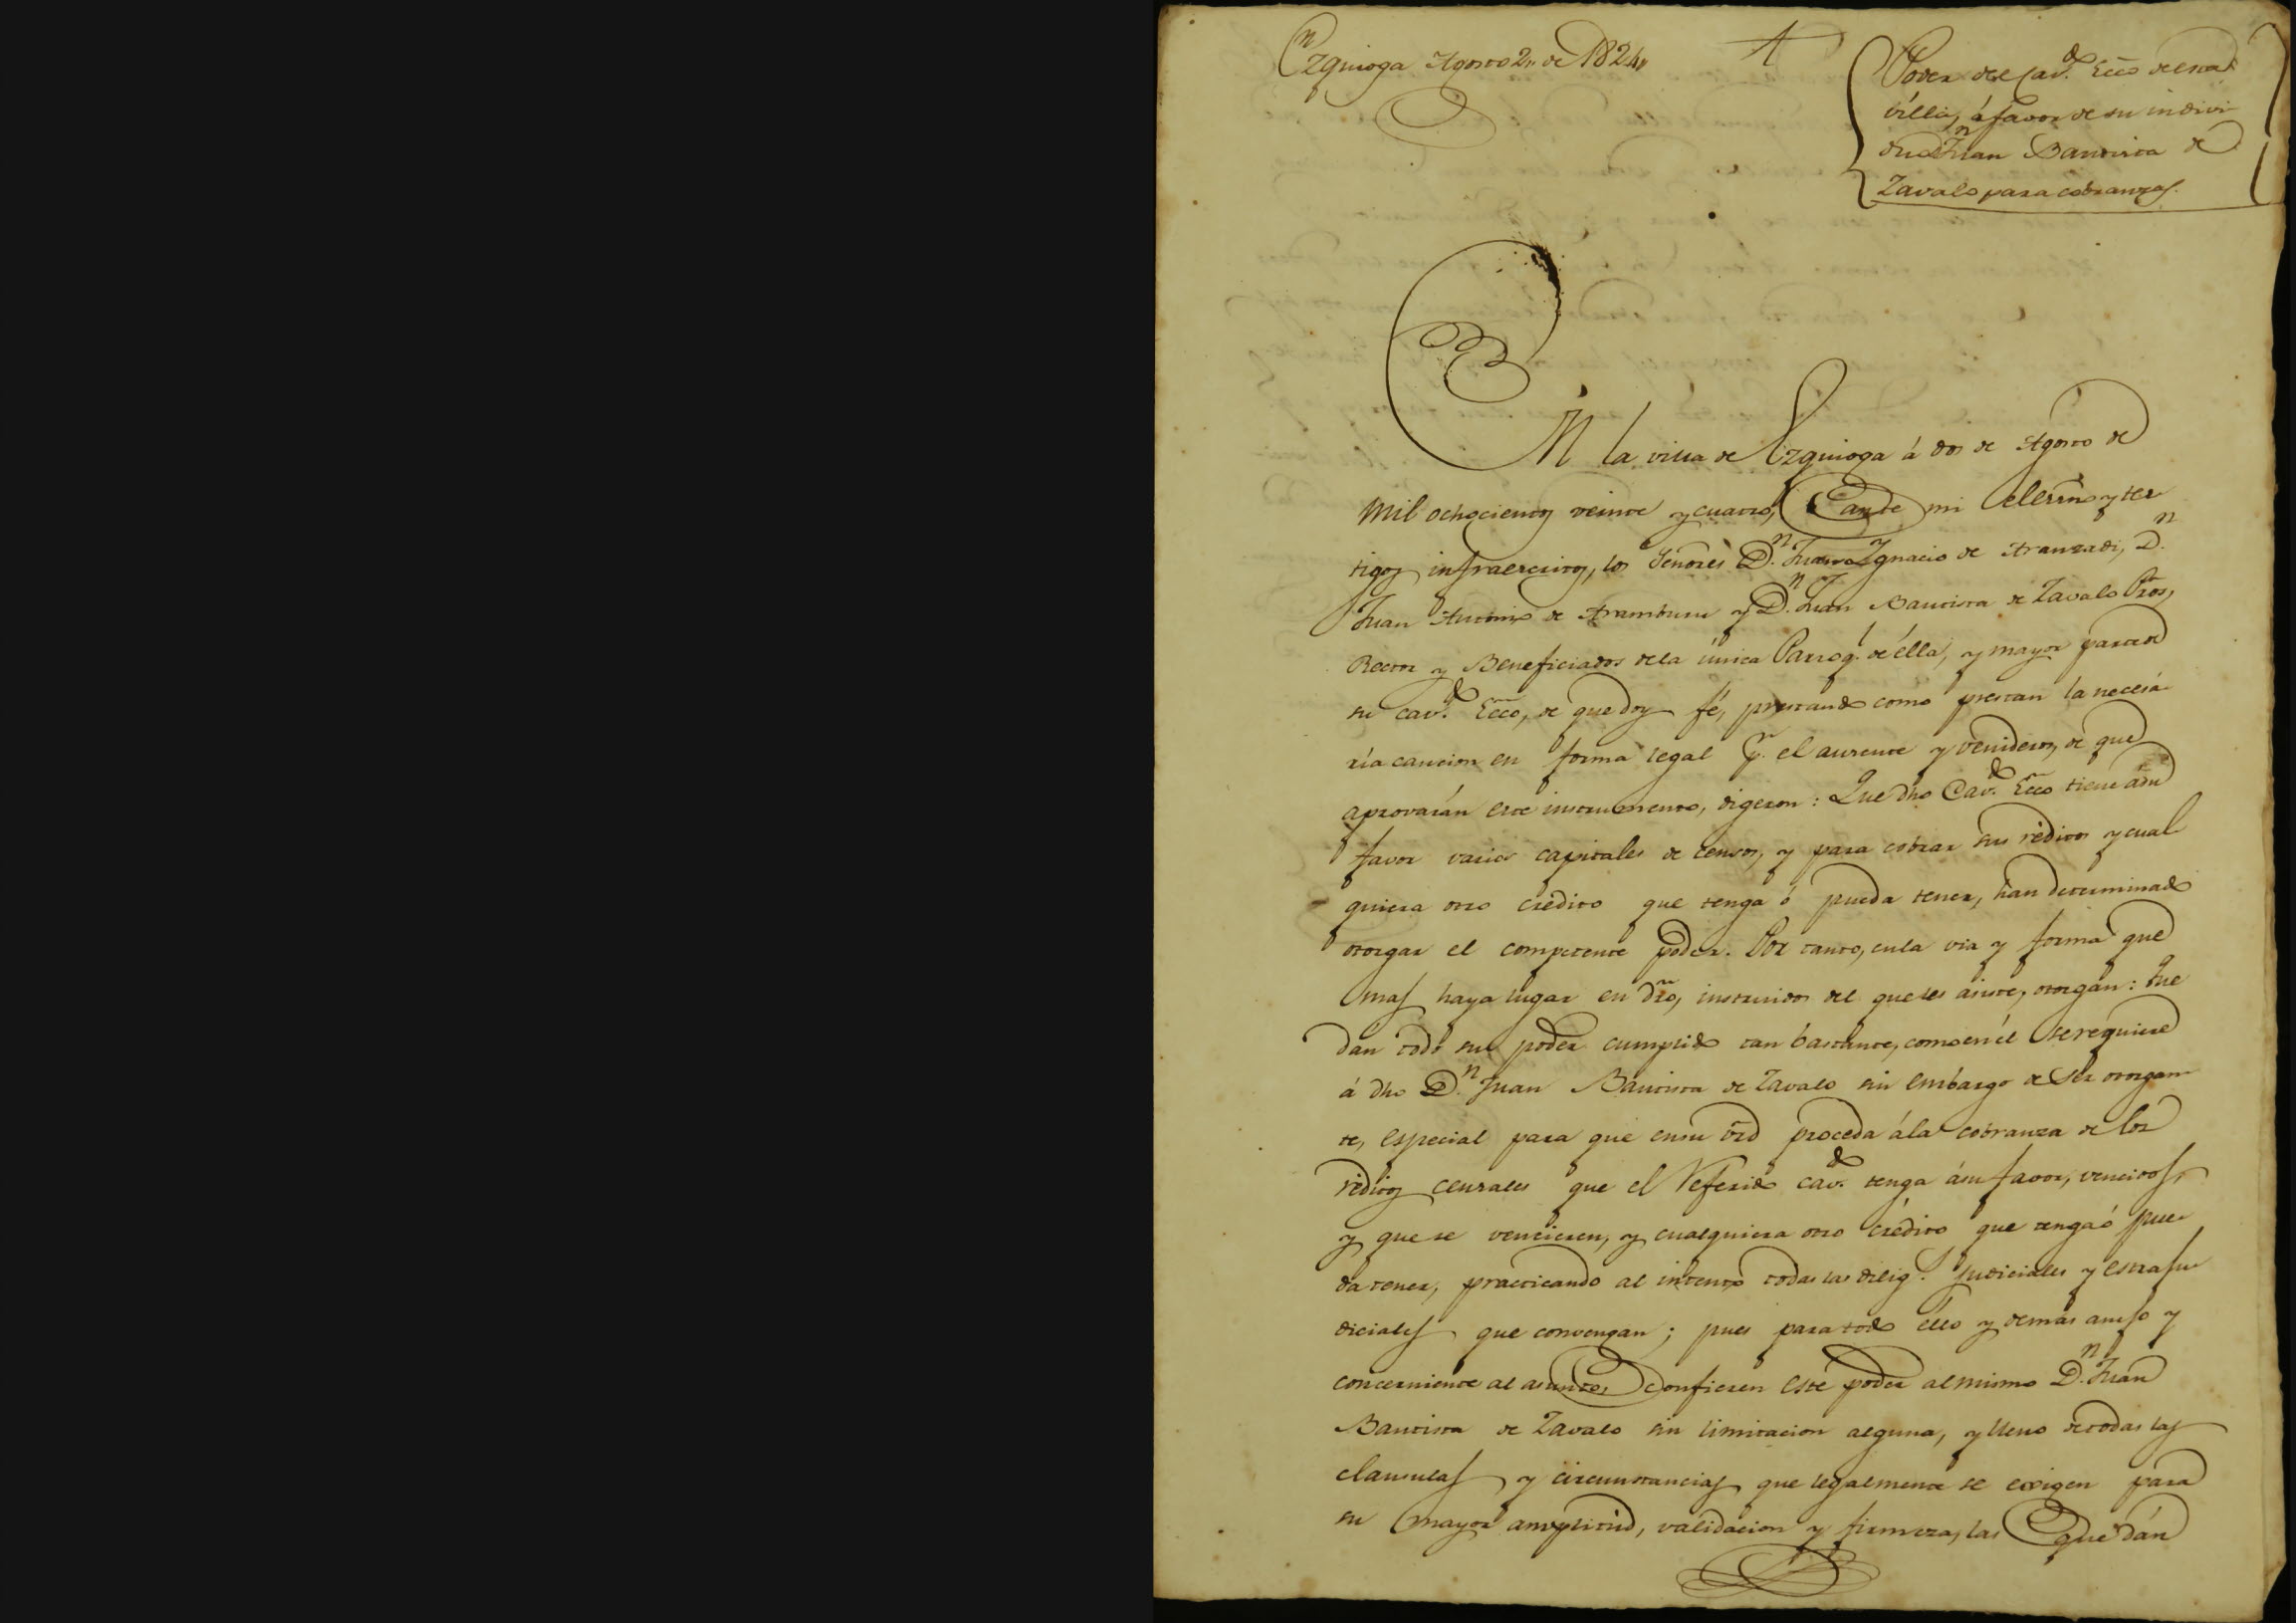 En Ezquioga Agosto 2,, de 1824,,
Poder del Cav.do Ecco de esta
villa, á favor de su indivi-
duo Dn Juan Bautista de
Zavalo para cobranzas.
En la villa de Ezquioga á dos de Agosto de
mil ochocientos veinte y cuatro, ante mi el essno y tes-
tigos infraescritos, los Señores D.n Juan Ignacio de Aranzadi, D.n
Juan Antonio de Aramburu y D.n Juan Bautista de Zavalo Pros,
Rector y Beneficiados de la única Parroq.l de élla, y mayor parte de
su cav.do Ecco, de que doy fé, prestando como prestan la necesa-
ria caucion en forma legal p.r el ausente y venideros, de que
aprovarán este instrumento, digeron: Que dho Cav.do Ecco tiene ásu
favor varios capitales de censos, y para cobrar sus réditos y cual-
quiera otro crédito que tenga ó pueda tener, han determinado
otorgar el competente poder. Por tanto, en la via y forma que
mas haya lugar en dro, instruidos del que les asiste, otorgan: Que
dán todo su poder cumplido tan bastante, como en él se requiere
á dho D.n Juan Bautista de Zavalo sin embargo de ser otorgan-
te, especial para que en su vrd proceda á la cobranza de los
réditos censales que el referido cav.do tenga ásu favor, vencidos,
y que se vencieren, y cualquiera otro crédito que tenga ó pue-
da tener, practicando al intento todas las dilig.s judiciales y estraju-
diciales que convengan; pues para todo éllo y demás anejo y
concerniente al asunto, confieren este poder al mismo D.n Juan
Bautista de Zavalo sin limitacion alguna, y lleno de todas las
clausulas y circunstancias que legalmente se exigen para
su mayor amplitud, validacion y firmeza, las que dán